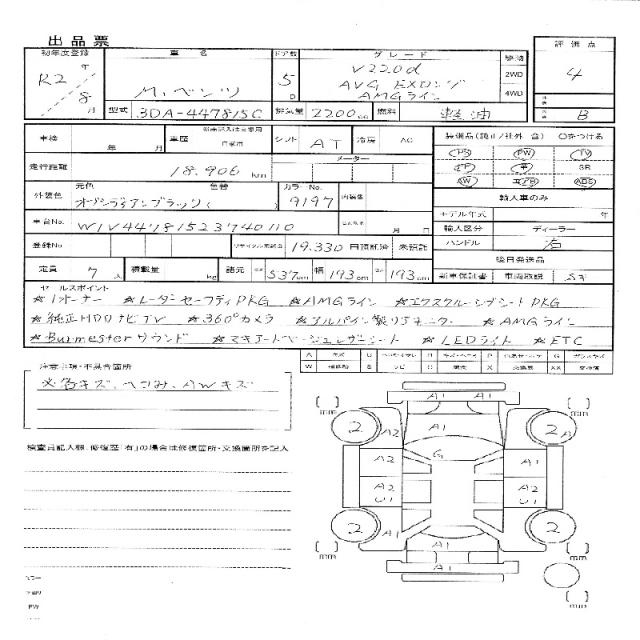 出品票
初年度登録 車名 ドア数 グレード 駆動 評価点
R2年 8月 M.ベンツ 5D V220d AVG EXロング AMGライン 2WD 4WD 4
型式 3DA-447815C 排気量 2200cc 燃料 軽油 B
車検 年 月 車歴 自家用 シフト AT 冷房 AC 装備品(純正/社外 含)○をつける
走行距離 18,906 km メーター PS PW TV
SR
AW ABS
外装色 元色 色替 カラーNo. 内装色 輸入車のみ
オブシディアンブラック( 9197 モデル年式 年
車台No. W1V44781523740110 月 日 輸入区分 ディーラー
登録No. リサイクル預託金 19,330 円預託済 未預託 ハンドル 右
後日発送品
定員 7人 積載量 kg 諸元 537cm 幅 193cm 193cm 新車保証書 車両取説
セールスポイント
☆1オーナー ☆レーダーセーフティPKG ☆AMGライン ☆エクスクルーシブシートPKG
☆純正HDDナビTV ☆360°カメラ ☆アルパイン製リアモニター ☆AMGライン
☆Burmesterサウンド ☆マキアートベージュレザーシート ☆LEDライト ☆ETC
A キズ U P G
W S C X 交換済 XX
注意事項・不具合箇所
各キズ、へこみ、AWキズ
検査員記入欄、修復歴「有」の場合は修復箇所・交換箇所を記入
mm A1 A1 mm
2 A2 A1 2 A
A2 G A1
A2 U1 A2 U1
2 A2 A1 A1 2
mm A1 mm
mm